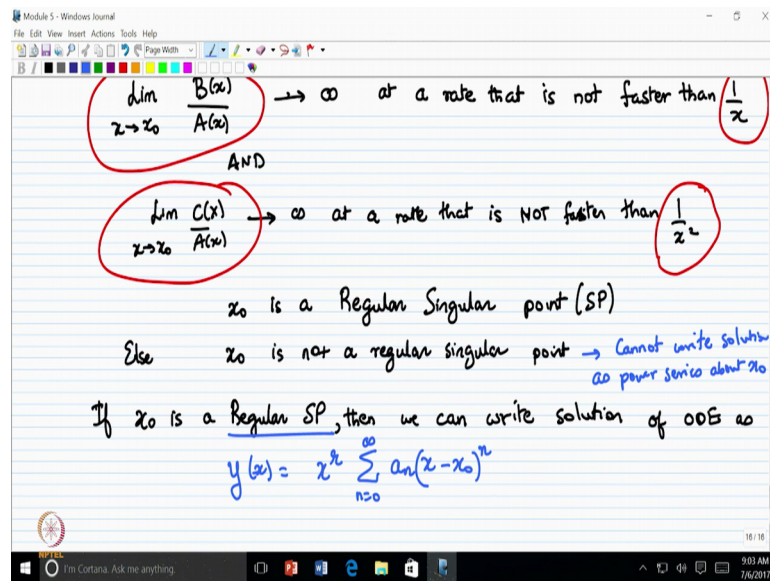 Module 5 - Windows Journal
File Edit View Insert Actions Tools Help
Page Width
B I
Lim x→x₀ B(x)/A(x) → ∞ at a rate that is not faster than 1/x
AND
Lim x→x₀ C(x)/A(x) → ∞ at a rate that is NOT faster than 1/x²
x₀ is a Regular Singular point (SP)
Else x₀ is not a regular singular point → Cannot write solution
as power series about x₀
If x₀ is a Regular SP, then we can write solution of ODE as
y(x) = x^r ∑_{n=0}^{∞} an(x-x₀)^n
16/16
NPTEL
I'm Cortana. Ask me anything.
9:03 AM
7/6/2017